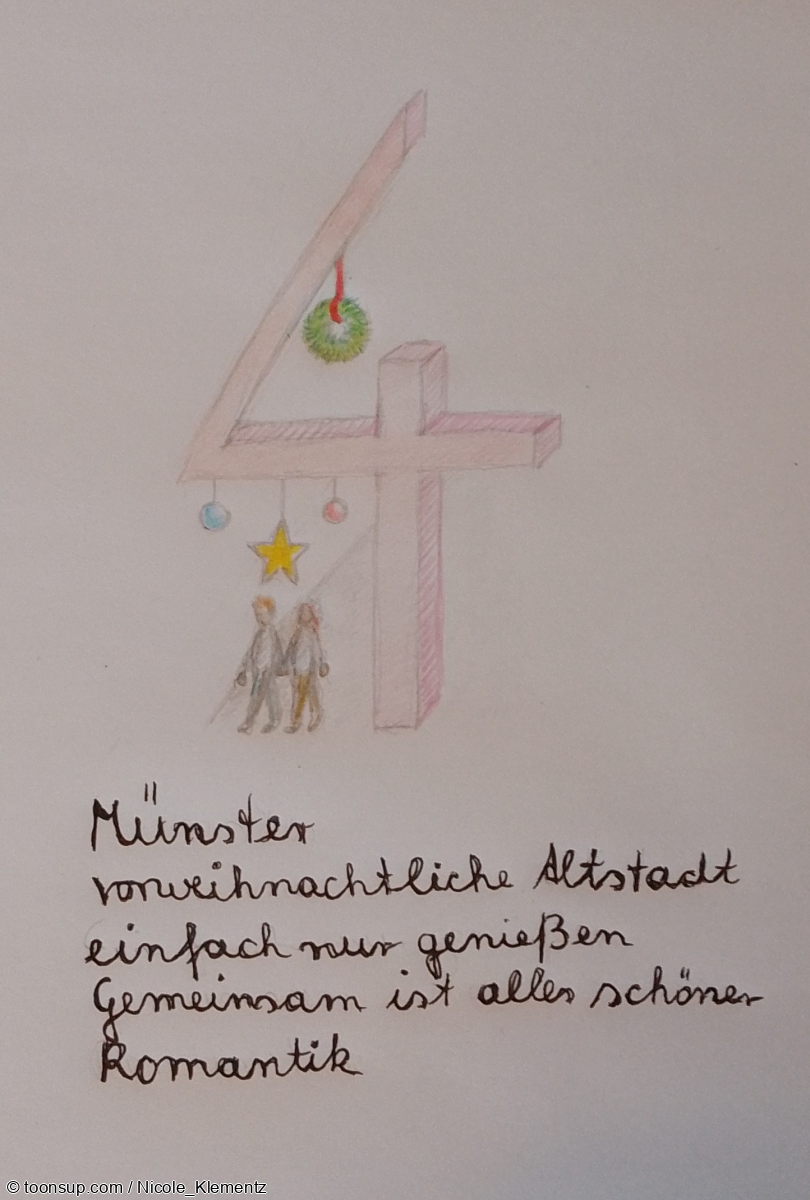 4
Münster
vorweihnachtliche Altstadt
einfach nur genießen
Gemeinsam ist alles schöner
Romantik
© toonsup.com / Nicole_Klementz